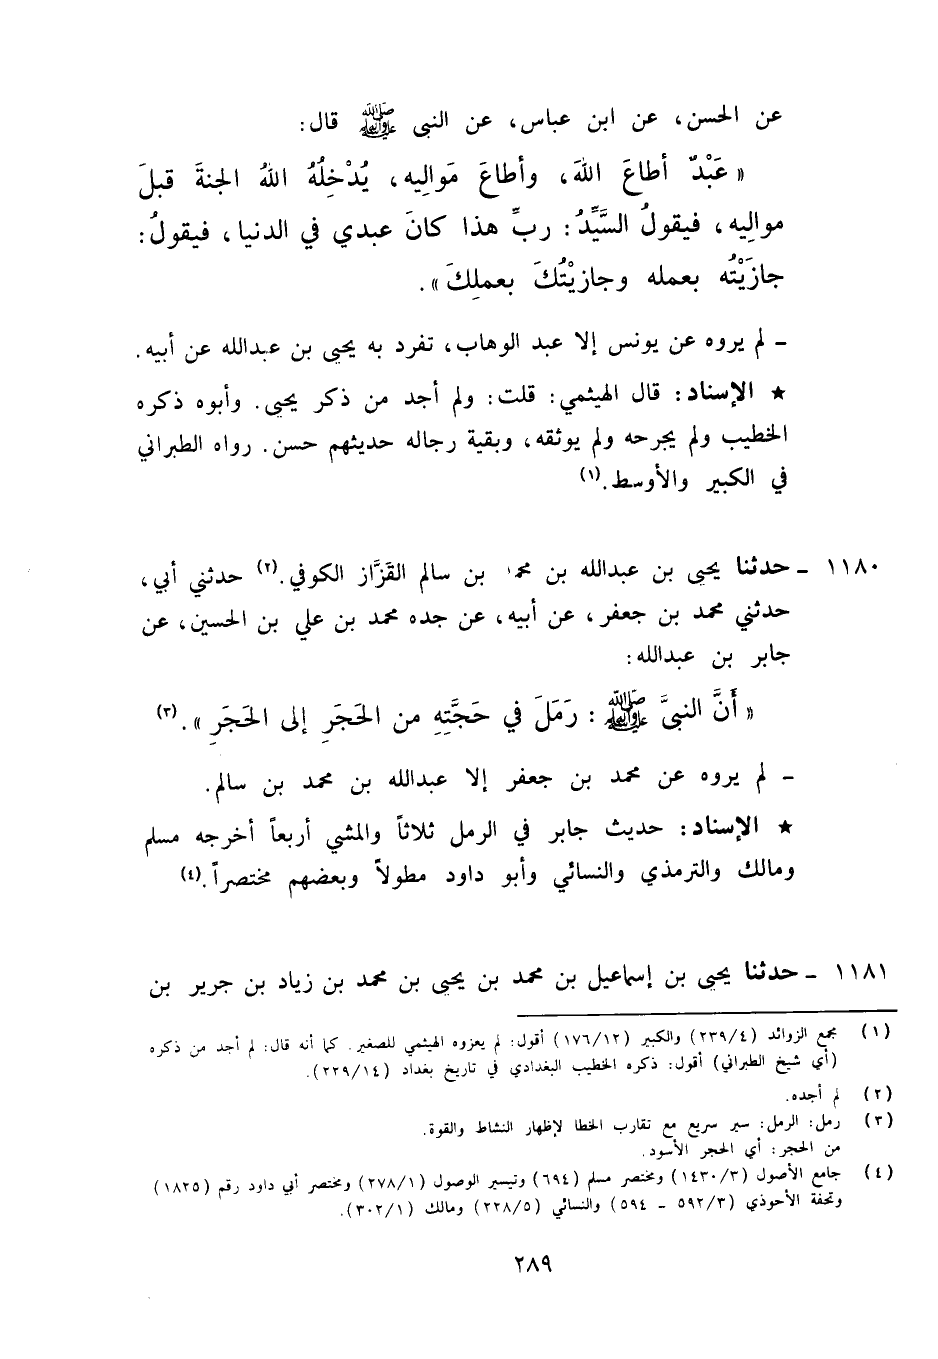 عن الحسن، عن ابن عباس، عن النبي ﷺ قال:
« عَبْدٌ أطاعَ اللهَ، وأطاعَ مَوالِيه، يُدْخِلُهُ اللهُ الجنةَ قبلَ
موالِيه، فيقولُ السَّيِّدُ: ربِّ هذا كانَ عبدي في الدنيا، فيقولُ:
جازَيْتُه بعمله وجازيْتُكَ بعملِكَ ».
- لم يروه عن يونس إلا عبد الوهاب، تفرد به يحيى بن عبدالله عن أبيه.
★ الإسناد: قال الهيثمي: قلت: ولم أجد من ذكر يحيى. وأبوه ذكره
الخطيب ولم يجرحه ولم يوثقه، وبقية رجاله حديثهم حسن. رواه الطبراني
في الكبير والأوسط.(١)
١١٨٠ - حدثنا يحيى بن عبدالله بن محمد بن سالم القَزَّاز الكوفي.(٢) حدثني أبي،
حدثني محمد بن جعفر، عن أبيه، عن جده محمد بن علي بن الحسين، عن
جابر بن عبدالله:
« أَنَّ النبيَّ ﷺ: رَمَلَ في حَجَّتِهِ من الحَجَرِ إلى الحَجَرِ ».(٣)
- لم يروه عن محمد بن جعفر إلا عبدالله بن محمد بن سالم.
★ الإسناد: حديث جابر في الرمل ثلاثاً والمشي أربعاً أخرجه مسلم
ومالك والترمذي والنسائي وأبو داود مطولاً وبعضهم مختصراً.(٤)
١١٨١ - حدثنا يحيى بن إسماعيل بن محمد بن يحيى بن محمد بن زياد بن جرير بن
(١) مجمع الزوائد (٢٣٩/٤) والكبير (١٧٦/١٢) أقول: لم يعزوه الهيثمي للصغير. كما أنه قال: لم أجد من ذكره
(أي شيخ الطبراني) أقول: ذكره الخطيب البغدادي في تاريخ بغداد (٢٢٩/١٤).
(٢) لم أجده.
(٣) رمل: الرمل: سير سريع مع تقارب الخطا لإظهار النشاط والقوة.
من الحجر: أي الحجر الأسود.
(٤) جامع الأصول (١٤٣٠/٣) ومختصر مسلم (٦٩٤) وتيسير الوصول (٢٧٨/١) ومختصر أبي داود رقم (١٨٢٥)
وتحفة الأحوذي (٥٩٢/٣ - ٥٩٤) والنسائي (٢٢٨/٥) ومالك (٣٠٢/١).
٢٨٩